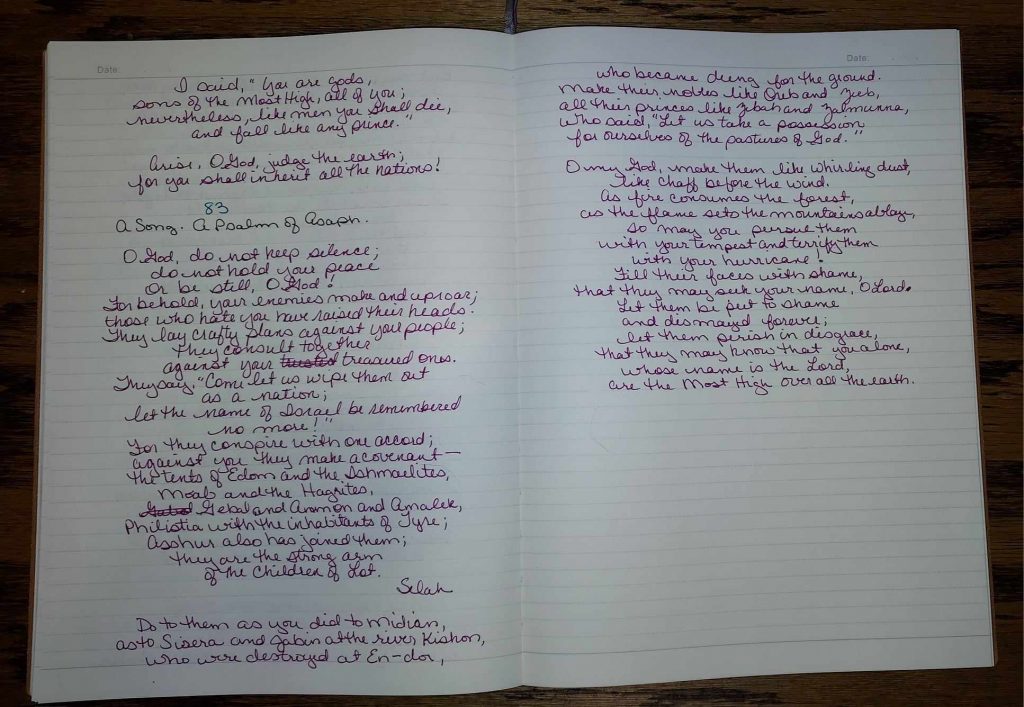 Date:
I said, "You are gods,
sons of the Most High, all of you;
nevertheless, like men you shall die,
and fall like any prince."
Arise, O God, judge the earth;
for you shall inherit all the nations!
83
A Song. A Psalm of Asaph.
O God, do not keep silence;
do not hold your peace
Or be still, O God!
For behold, your enemies make and uproar;
those who hate you have raised their heads.
They lay crafty plans against your people;
they consult together
against your trusted treasured ones.
They say, "Come let us wipe them out
as a nation;
let the name of Israel be remembered
no more!"
For they conspire with one accord;
against you they make a covenant—
the tents of Edom and the Ishmaelites,
Moab and the Hagrites,
Gebal and Ammon and Amalek,
Philistia with the inhabitants of Tyre;
Asshur also has joined them;
they are the strong arm
of the Children of Lot.
Selah
Do to them as you did to Midian,
as to Sisera and Jabin at the river Kishon,
who were destroyed at En-dor,
Date:
who became dung for the ground.
Make their nobles like Oreb and Zeeb,
all their princes like Zebah and Zalmunna,
who said, "Let us take a possession
for ourselves of the pastures of God."
O my God, make them like whirling dust,
like chaff before the wind.
As fire consumes the forest,
as the flame sets the mountains ablaze,
so may you pursue them
with your tempest and terrify them
with your hurricane!
Fill their faces with shame,
that they may seek your name, O Lord.
Let them be put to shame
and dismayed forever;
let them perish in disgrace,
that they may know that you alone,
whose name is the Lord,
are the Most High over all the earth.